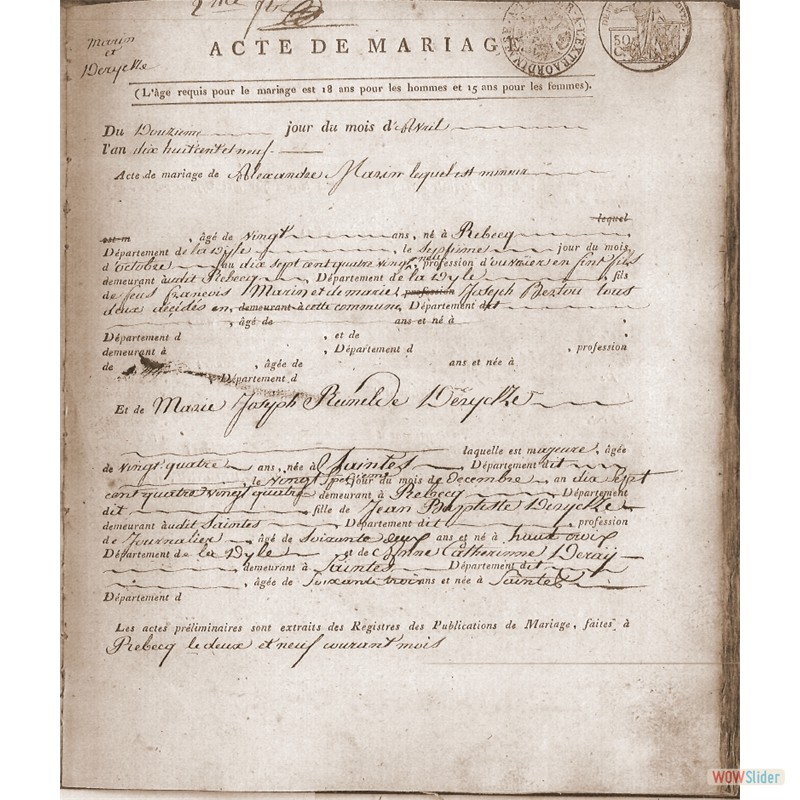 2me
ACTE DE MARIAGE
Marin
et
Deryckke
A L'EXTRAORDINAIRE
50
C
(L'âge requis pour le mariage est 18 ans pour les hommes et 15 ans pour les femmes).
Du Douzieme jour du mois d'Avril
l'an dix huit cent et neuf.
Acte de mariage de Alexandre Marin lequel est mineur
lequel
est m , âgé de vingt ans, né à Rebecq
Département de la Dyle , le Septieme jour du mois
d'octobre an dix sept cent quatre vingt neuf profession d'ouvrier en fin fils
demeurant audit Rebecq Département de la Dyle , fils
de feus francois Marin et de marie profession Joseph Bertou tous
deux décidés en demeurant à cette commune, Département dit
, âgé de ans et né à ,
Département d , et de ,
demeurant à , Département d , profession
de , âgée de ans et née à
, Département d
Et de Marie Joseph Rumelde Deryckke
laquelle est majeure , âgée
de vingt quatre ans, née à Saintes Département dit
, le vingt jour du mois de Decembre an dix Sept
cent quatre vingt quatre demeurant à Rebecq Département
dit fille de Jean Baptiste Deryckke
demeurant audit Saintes Département dit profession
de Journalier , âgé de Soixante deux ans et né à haut croix
Département de la Dyle et de Anne Catherinne Deraij
, demeurant à Saintes Département dit
, âgée de Soixante trois ans et née à Saintes
Département d
Les actes préliminaires sont extraits des Registres des Publications de Mariage, faites à
Rebecq le deux et neuf courant mois
WOWSlider